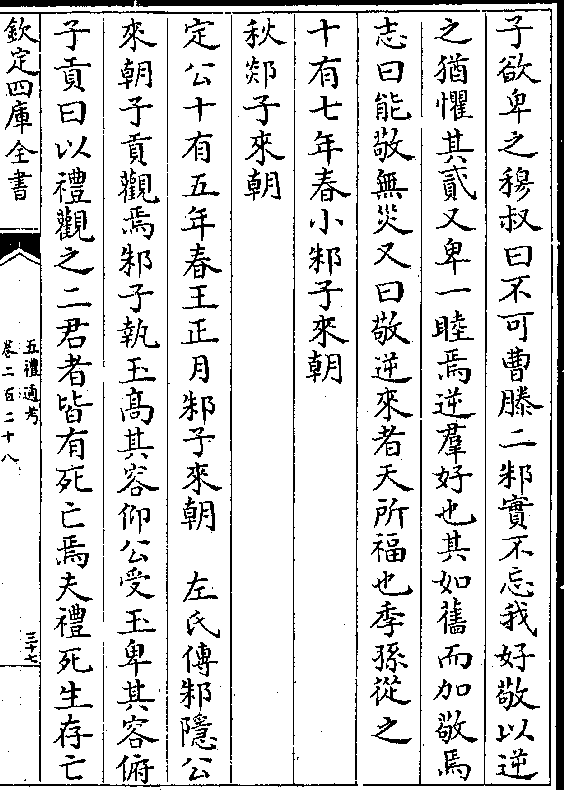 子欲卑之穆叔曰不可曹滕二邾實不忘我好敬以逆
之猶懼其貳又卑一睦焉逆羣好也其如舊而加敬焉
志曰能敬無災又曰敬逆來者天所福也季孫從之
十有七年春小邾子來朝
秋郯子來朝
定公十有五年春王正月邾子來朝　左氏傳邾隱公
來朝子貢觀焉邾子執玉髙其容仰公受玉卑其容俯
子貢曰以禮觀之二君者皆有死亡焉夫禮死生存亡
欽定四庫全書
五禮通考
卷二百二十八
三十七